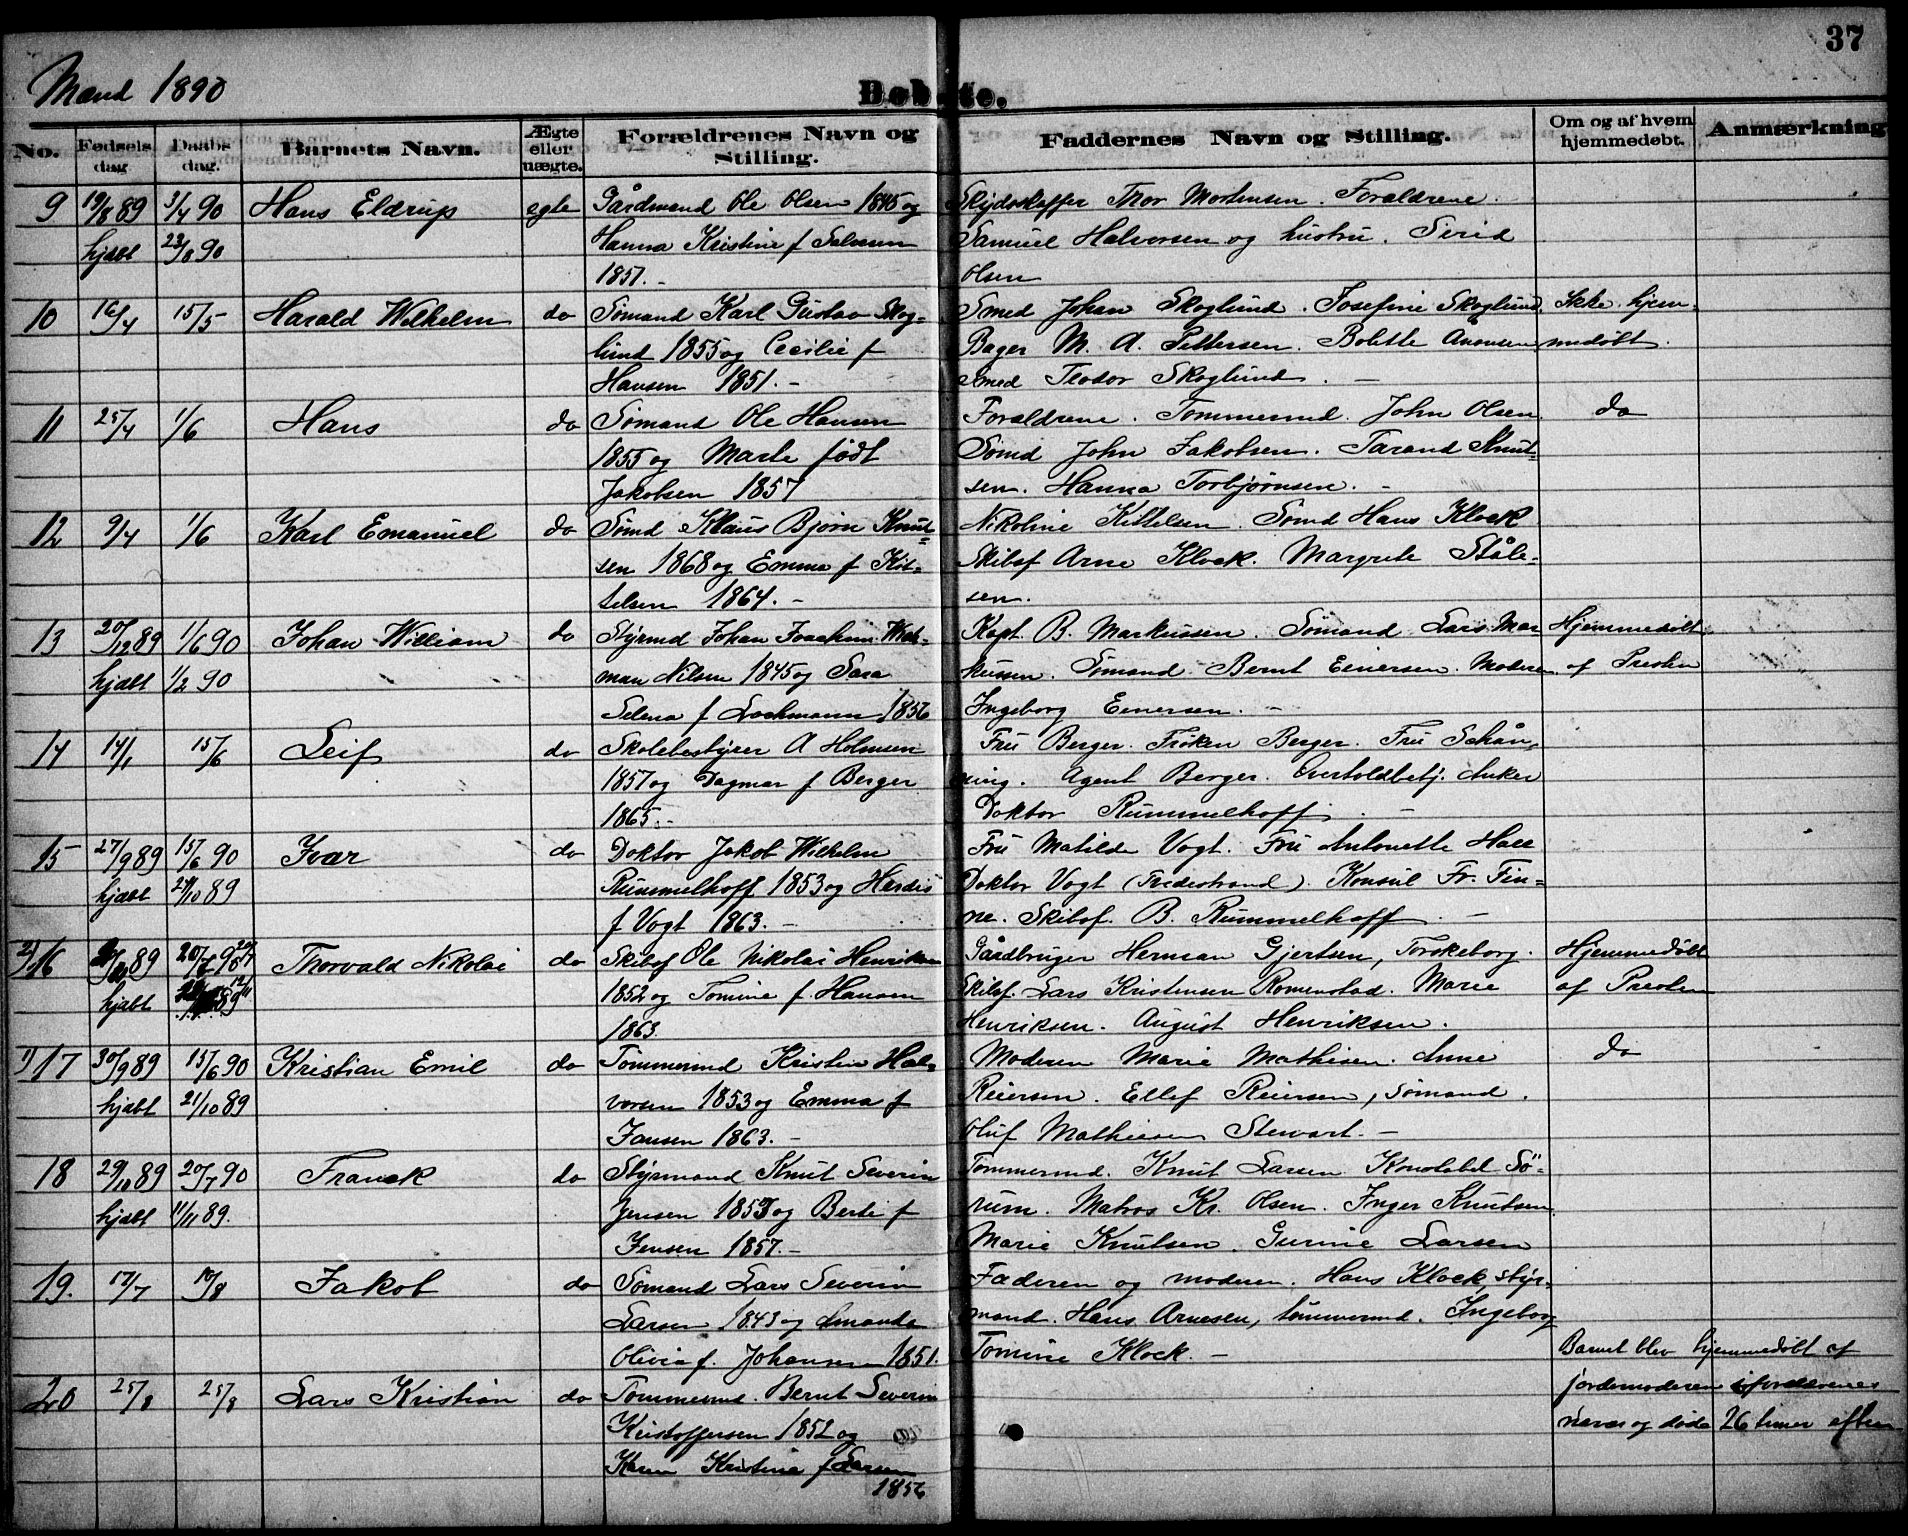 37
Mænd 1890
Døbte.
No. Fødsels dag Daabs dag. Barnets Navn. Ægte eller uægte. Forældrenes Navn og Stilling. Faddernes Navn og Stilling. Om og af hvem hjemmedøbt. Anmærkning
9 19/8 89 3/4 90 Hans Eldrup egte Gårdmand Ole Olsen 1845 og Skydsskaffer Thor Mortensen. Forældrene.
hjdbt 23/8 90 Hanna Kristine f Salvesen Samuel Halvorsen og hustru. Sirid
1851.- Olsen
10 16/4 15/5 Harald Wilhelm do Sømand Karl Gustav Skog- Smed Johan Skoglund. Josefine Skoglund. Ikke hjem-
lund 1855 og Cecilie f Bager M. A. Pettersen. Bolette Anonsen medøbt.
Hansen 1851.- Smed Teodor Skoglund. -
11 25/4 1/6 Hans do Sømand Ole Hansen Forældrene. Tømmermd. John Olsen do
1855 og Marte født Sømd John Jakobsen. Tarand Knut-
Jakobsen 1857 sen. Hanna Torbjørnsen. -
12 9/4 1/6 Karl Emanuel do Sømd Klaus Bjørn Knut- Nikoline Kittelsen. Sømd Hans Klock
sen 1868 og Emma f Kit- Skibsf Arne Klock. Margrete Ståle-
telsen 1864.- sen.
13 20/12 89 1/6 90 Johan William do Styrmd Johan Joachim Weh- Kapt. B. Markussen. Sømand Lars Mar Hjemmedøbt
hjdbt 1/2 90 man Nilsen 1845 og Sara kussen. Sømand Bernt Einersen. Moderen. af Presten
Selena f Lochmann 1856 Ingeborg Einersen. -
14 14/1 15/6 Leif do Skolebestyrer A Holmsen Fru Berger. Frøken Berger. Fru Schån-
1857 og Dagmar f Berger ning. Agent Berger. Overtoldbetj. Anker
1865.- Doktor Rummelhoff. -
15 27/9 89 15/6 90 Ivar do Doktor Jakob Wilhelm Fru Matilde Vogt. Fru Antonette Hall
hjdbt 24/10 89 Rummelhoff 1853 og Herdis Doktor Vogt (Tvedestrand). Konsul Fr. Fin-
f Vogt 1863.- ne. Skibsf. B. Rummelhoff. -
2) 16 89 20/7 90 Thorvald Nikolai do Skibsf Ole Nikolai Henriksen Gårdbruger Herman Gjertsen, Torskeborg. Hjemmedøbt
hjdbt 89 1852 og Tomine f. Hansen Skibsf. Lars Kristensen Romenstad. Marie af Presten
1863. Henriksen. August Henriksen.
1) 17 30/9 89 15/6 90 Kristian Emil do Tømmermd Kristen Hal- Moderen Marie Mathisen. Anne do
hjdbt 21/10 89 vorsen 1853 og Emma f Reiersen. Ellef Reiersen, sømand.
Jansen 1863.- Oluf Mathiesen Stewart.-
18 29/10 89 20/7 90 Franck do Styrmand Knut Severin Tømmermd. Knut Larsen. Konstabel Sö-
hjdbt 11/11 89. Jensen 1853 og Berte f rum. Matros Kr. Olsen. Inger Knutsen.
Jensen 1857.- Marie Knutsen. Gurine Larsen
19. 17/7 10/8 Jakob do Sømand Lars Severin Faderen og moderen. Hans Klock styr-
Larsen 1843 og Amanda mand. Hans Arnesen, tømmermd. Ingeborg
Olivia f. Johansen 1851. Tomine Klock. - Barnet blev hjemmedøbt af
20 25/8 25/8 Lars Kristian do Tømmermd. Bernt Severin jordemoderen i forældrenes
Kristoffersen 1852 og nærvær og døde 26 timer efter.
Karen Kristine f Larsen
1856